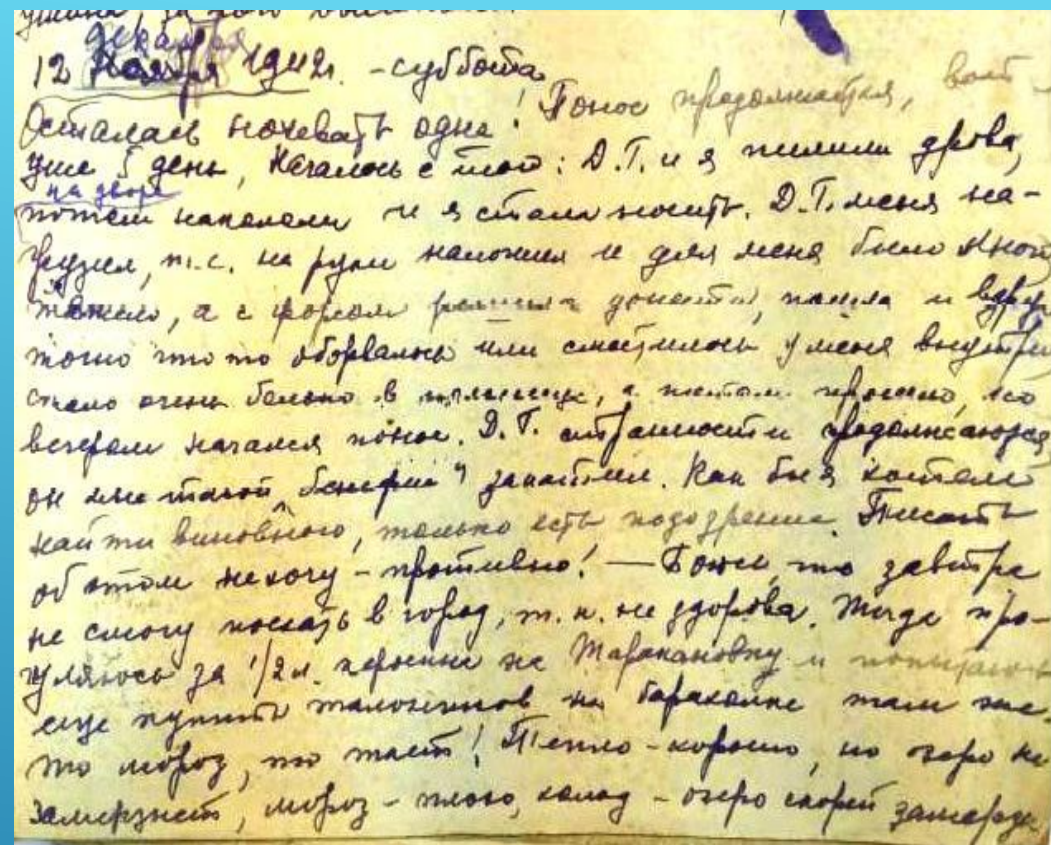 декабря
12 ноября 1942 г. - суббота
Осталась ночевать одна! Понос продолжается, вот
уже 5 день, началось с того: Д.Г. и я пилили дрова,
на дворе
потом накололи и я стала носить. Д.Г. меня на-
грузил, т.е. на руки наложил и для меня было
тяжело, а с форсом донести, пошла и вдруг
точно что то оборвалось или сместилось у меня внутри
стало очень больно в, а потом прошло, но
вечером начался понос. Д.Г. странности продолжаются
он мне такой „бенефис" закатил. Как бы я хотела
найти виновного, только есть подозрение. Писать
об этом не хочу - противно! — Боюсь, что завтра
не смогу поехать в город, т.к. не здорова. Тогда про-
гуляюсь за 1/2 л. керосина на Таракановку и попытаюсь
еще купить талончиков на барахолке там же.
то мороз, то тает! Тепло - хорошо, но озеро не
замерзнет, мороз - плохо, холод - озеро скорей